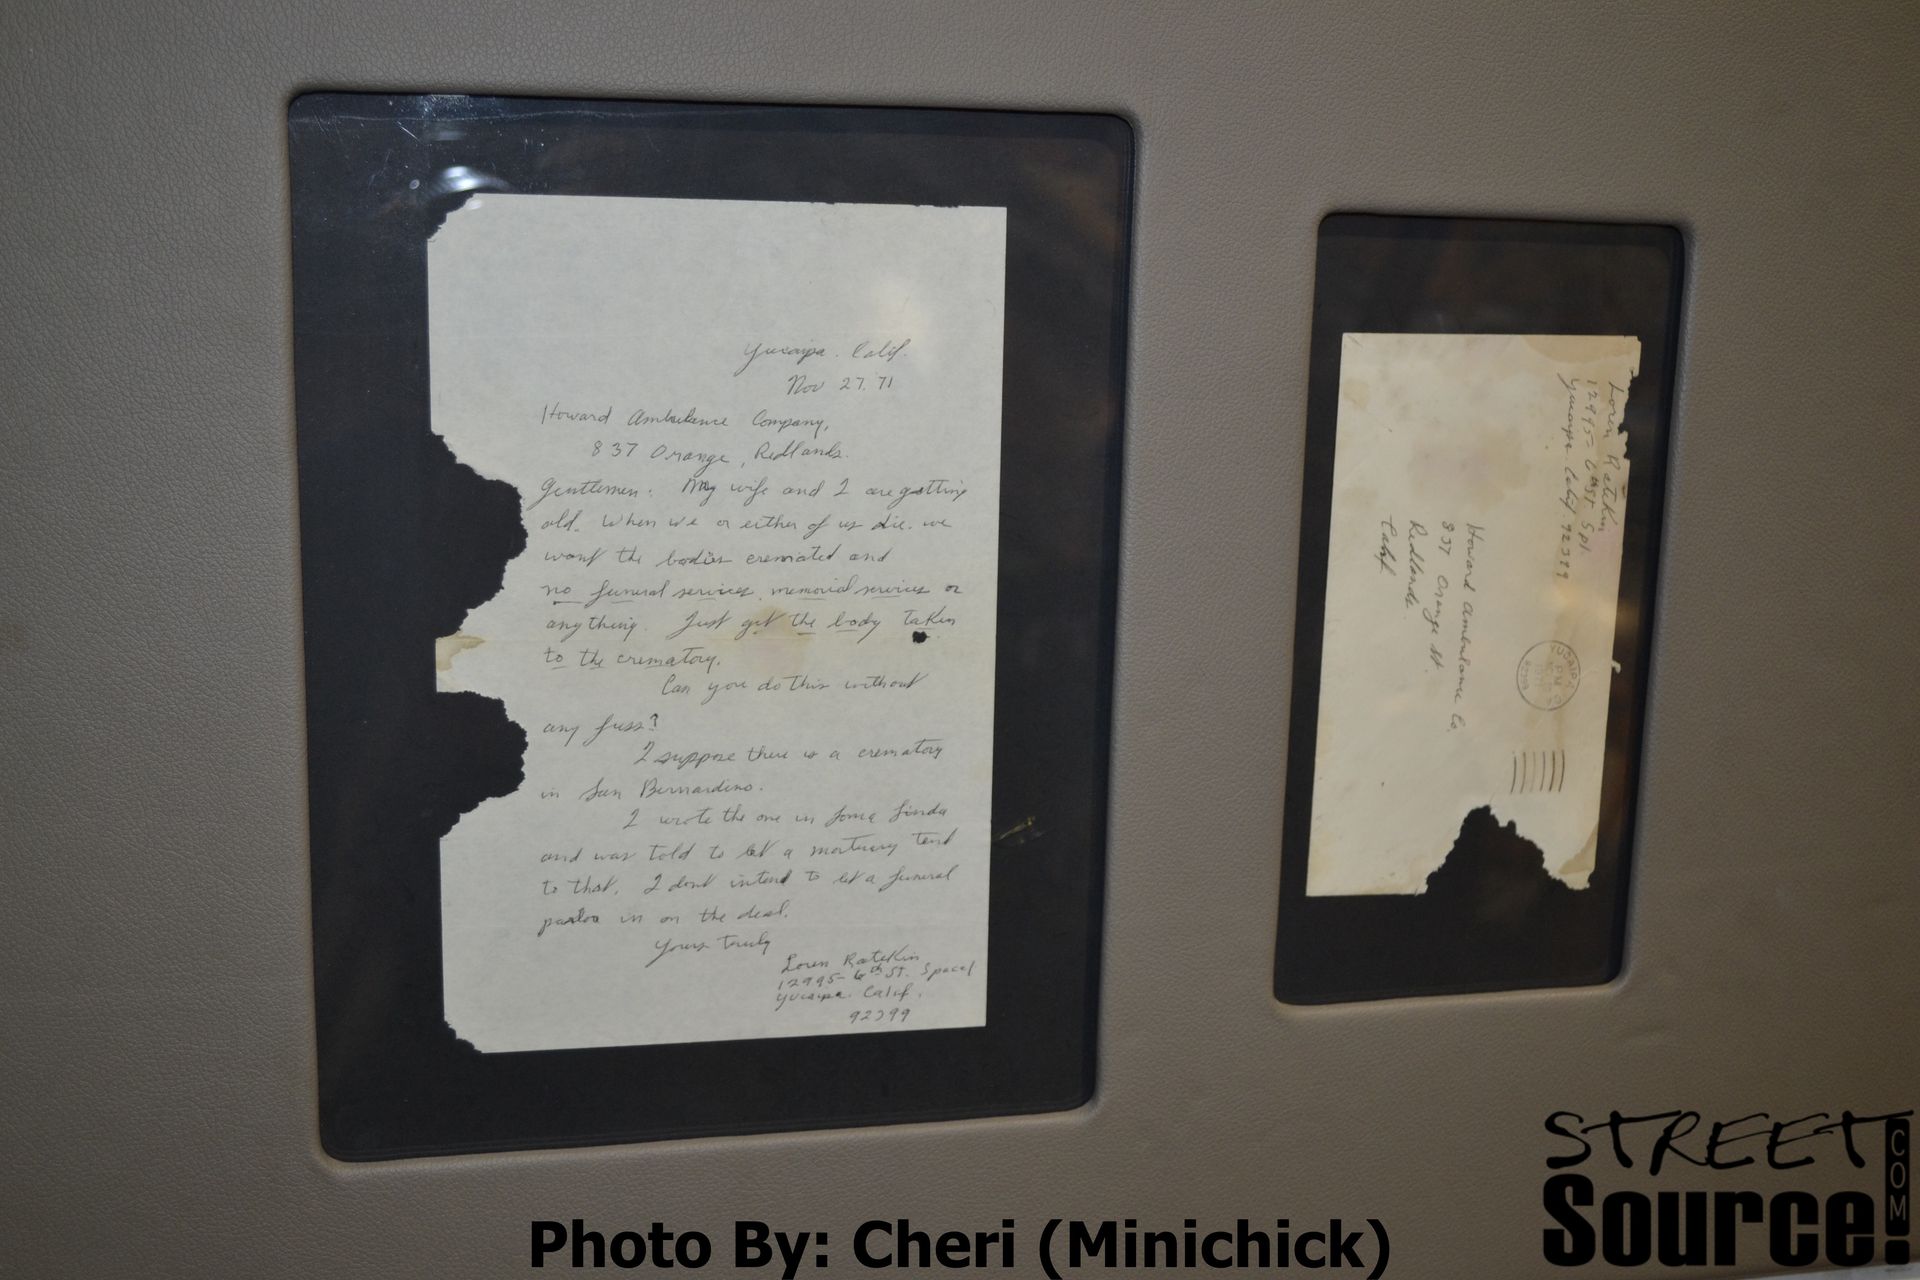 Yucaipa. Calif.
Nov 27. 71
Howard Ambulance Company,
837 Orange, Redlands.
Gentlemen: My wife and I are getting
old. When we or either of us die. we
want the bodies cremated and
no funeral services, memorial services or
anything. Just get the body taken
to the crematory.
Can you do this without
any fuss?
I suppose there is a crematory
in San Bernardino.
I wrote the one in Loma Linda
and was told to let a mortuary tend
to that. I dont intend to let a funeral
parlor in on the deal.
Yours Truly
Loren Ratekin
12995- 6th St. Space 1
Yucaipa. Calif.
92399
Loren Ratekin
12995- 6th St. Sp 1
Yucaipa. Calif 92399
Howard Ambulance Co.
837 Orange St.
Redlands
Calif
YUCAIPA
PM
Photo By: Cheri (Minichick)
STREET
Source!
COM